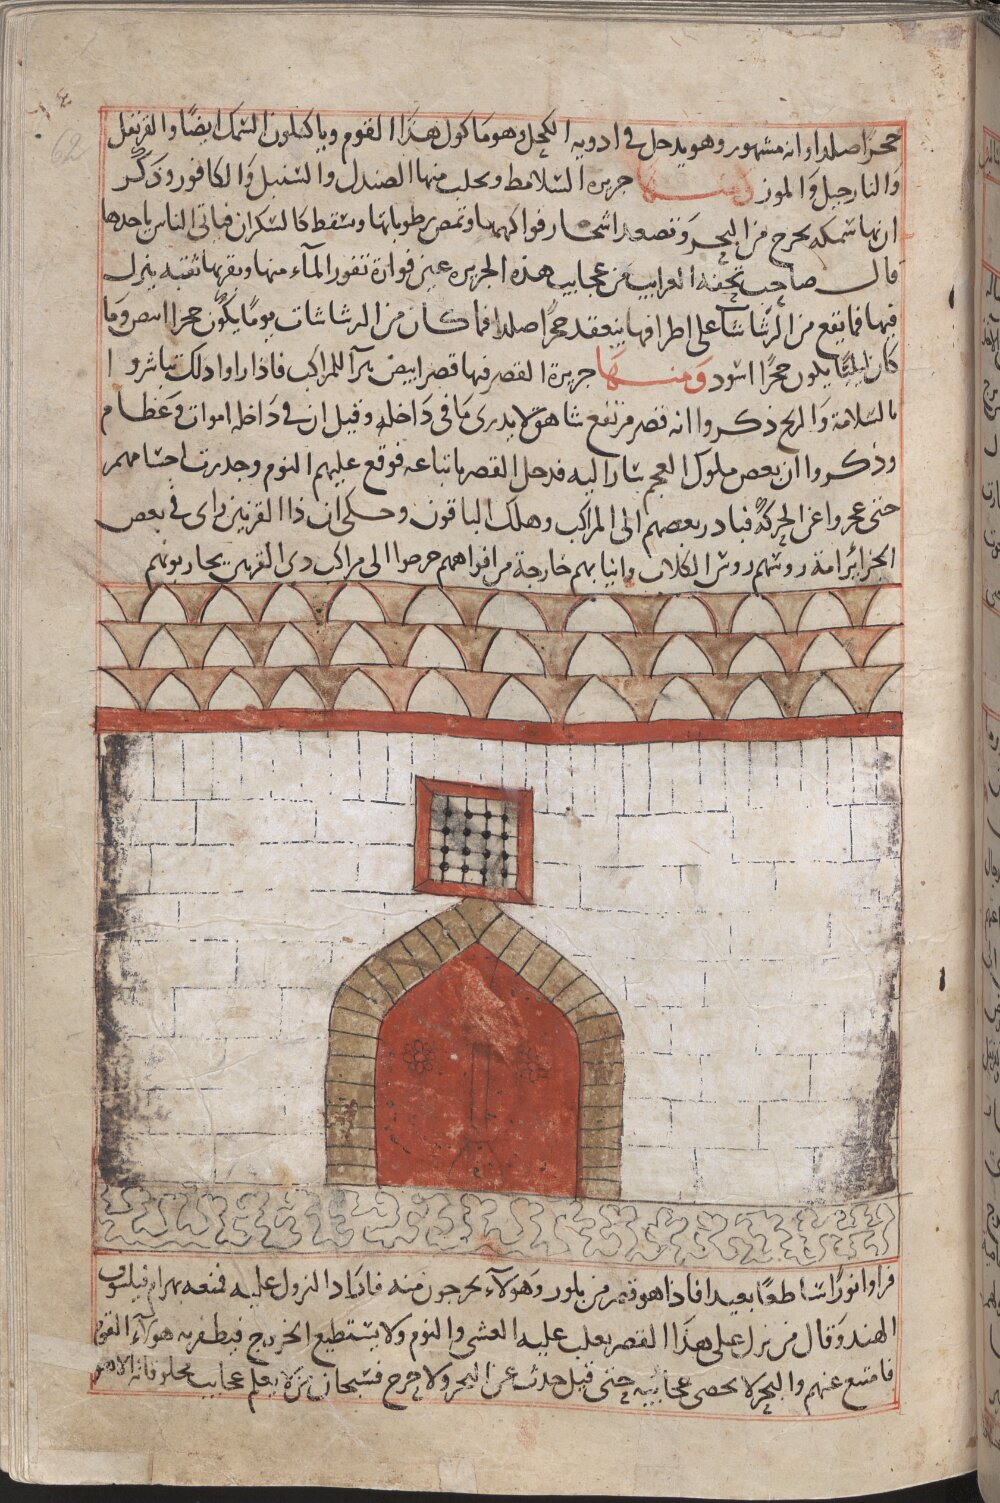 62
حجرا صلدا وانه مشهور وهو يدخل في ادويه الكحل وهو ماكول هذا القوم وياكلون السمك ايضا والقرنفل
والنارجيل والموز ومنها جزيره السلامط ويجلب منها الصندل والسنبل والكافور وذكر
ان بها سمكه تخرج من البحر وتصعد اشجار فواكهها وتمص رطوباتها وتسقط كالسكران فياتي الناس ياخذها
قال صاحب تحفه الغرايب من عجايب هذه الجزيره عين فوارة تفور الماء منها وبقربها ثقبه ينزل
فيها فما يقع من الرشاشات على اطرافها ينعقد حجرا صلدا فما كان من الرشاشات يوما يكون حجرا ابيض وما
كان ليليا يكون حجرا اسود ومنها جزيرة القصر فيها قصر ابيض يرآ للمراكب فاذا راوا ذلك تباشروا
بالسلامة والربح ذكروا انه قصر مرتفع شاهق لا يدرى ما في داخله وقيل ان في داخله اموات وعظام
وذكروا ان بعض ملوك العجم سار اليه فدخل القصر باتباعه فوقع عليهم النوم وخدرت اجسامهم
حتى عجزوا عن الحركة فبادر بعضهم الى المراكب وهلك الباقون وحكى ان ذا القرنين راى في بعض
الجزائر امة روسهم روس الكلاب وانيابهم خارجة من افواههم خرجوا الى مراكب ذى القرنين يحاربونهم
فراوا نورا ساطعا بعيدا فاذا هو قصر من بلور وهولآء يخرجون منه فاراد النزول عليه فمنعه بهرام فيلسوف
الهند وقال من نزل على هذا القصر يغلب عليه الغشى والنوم ولا يستطيع الخروج فيظفر به هولآء القوم
فامتنع عنهم والبحر لا يحصى عجايبه حتى قيل حدث عن البحر ولا حرج فسبحان من لا يعلم عجايب مخلوقاته الا هو